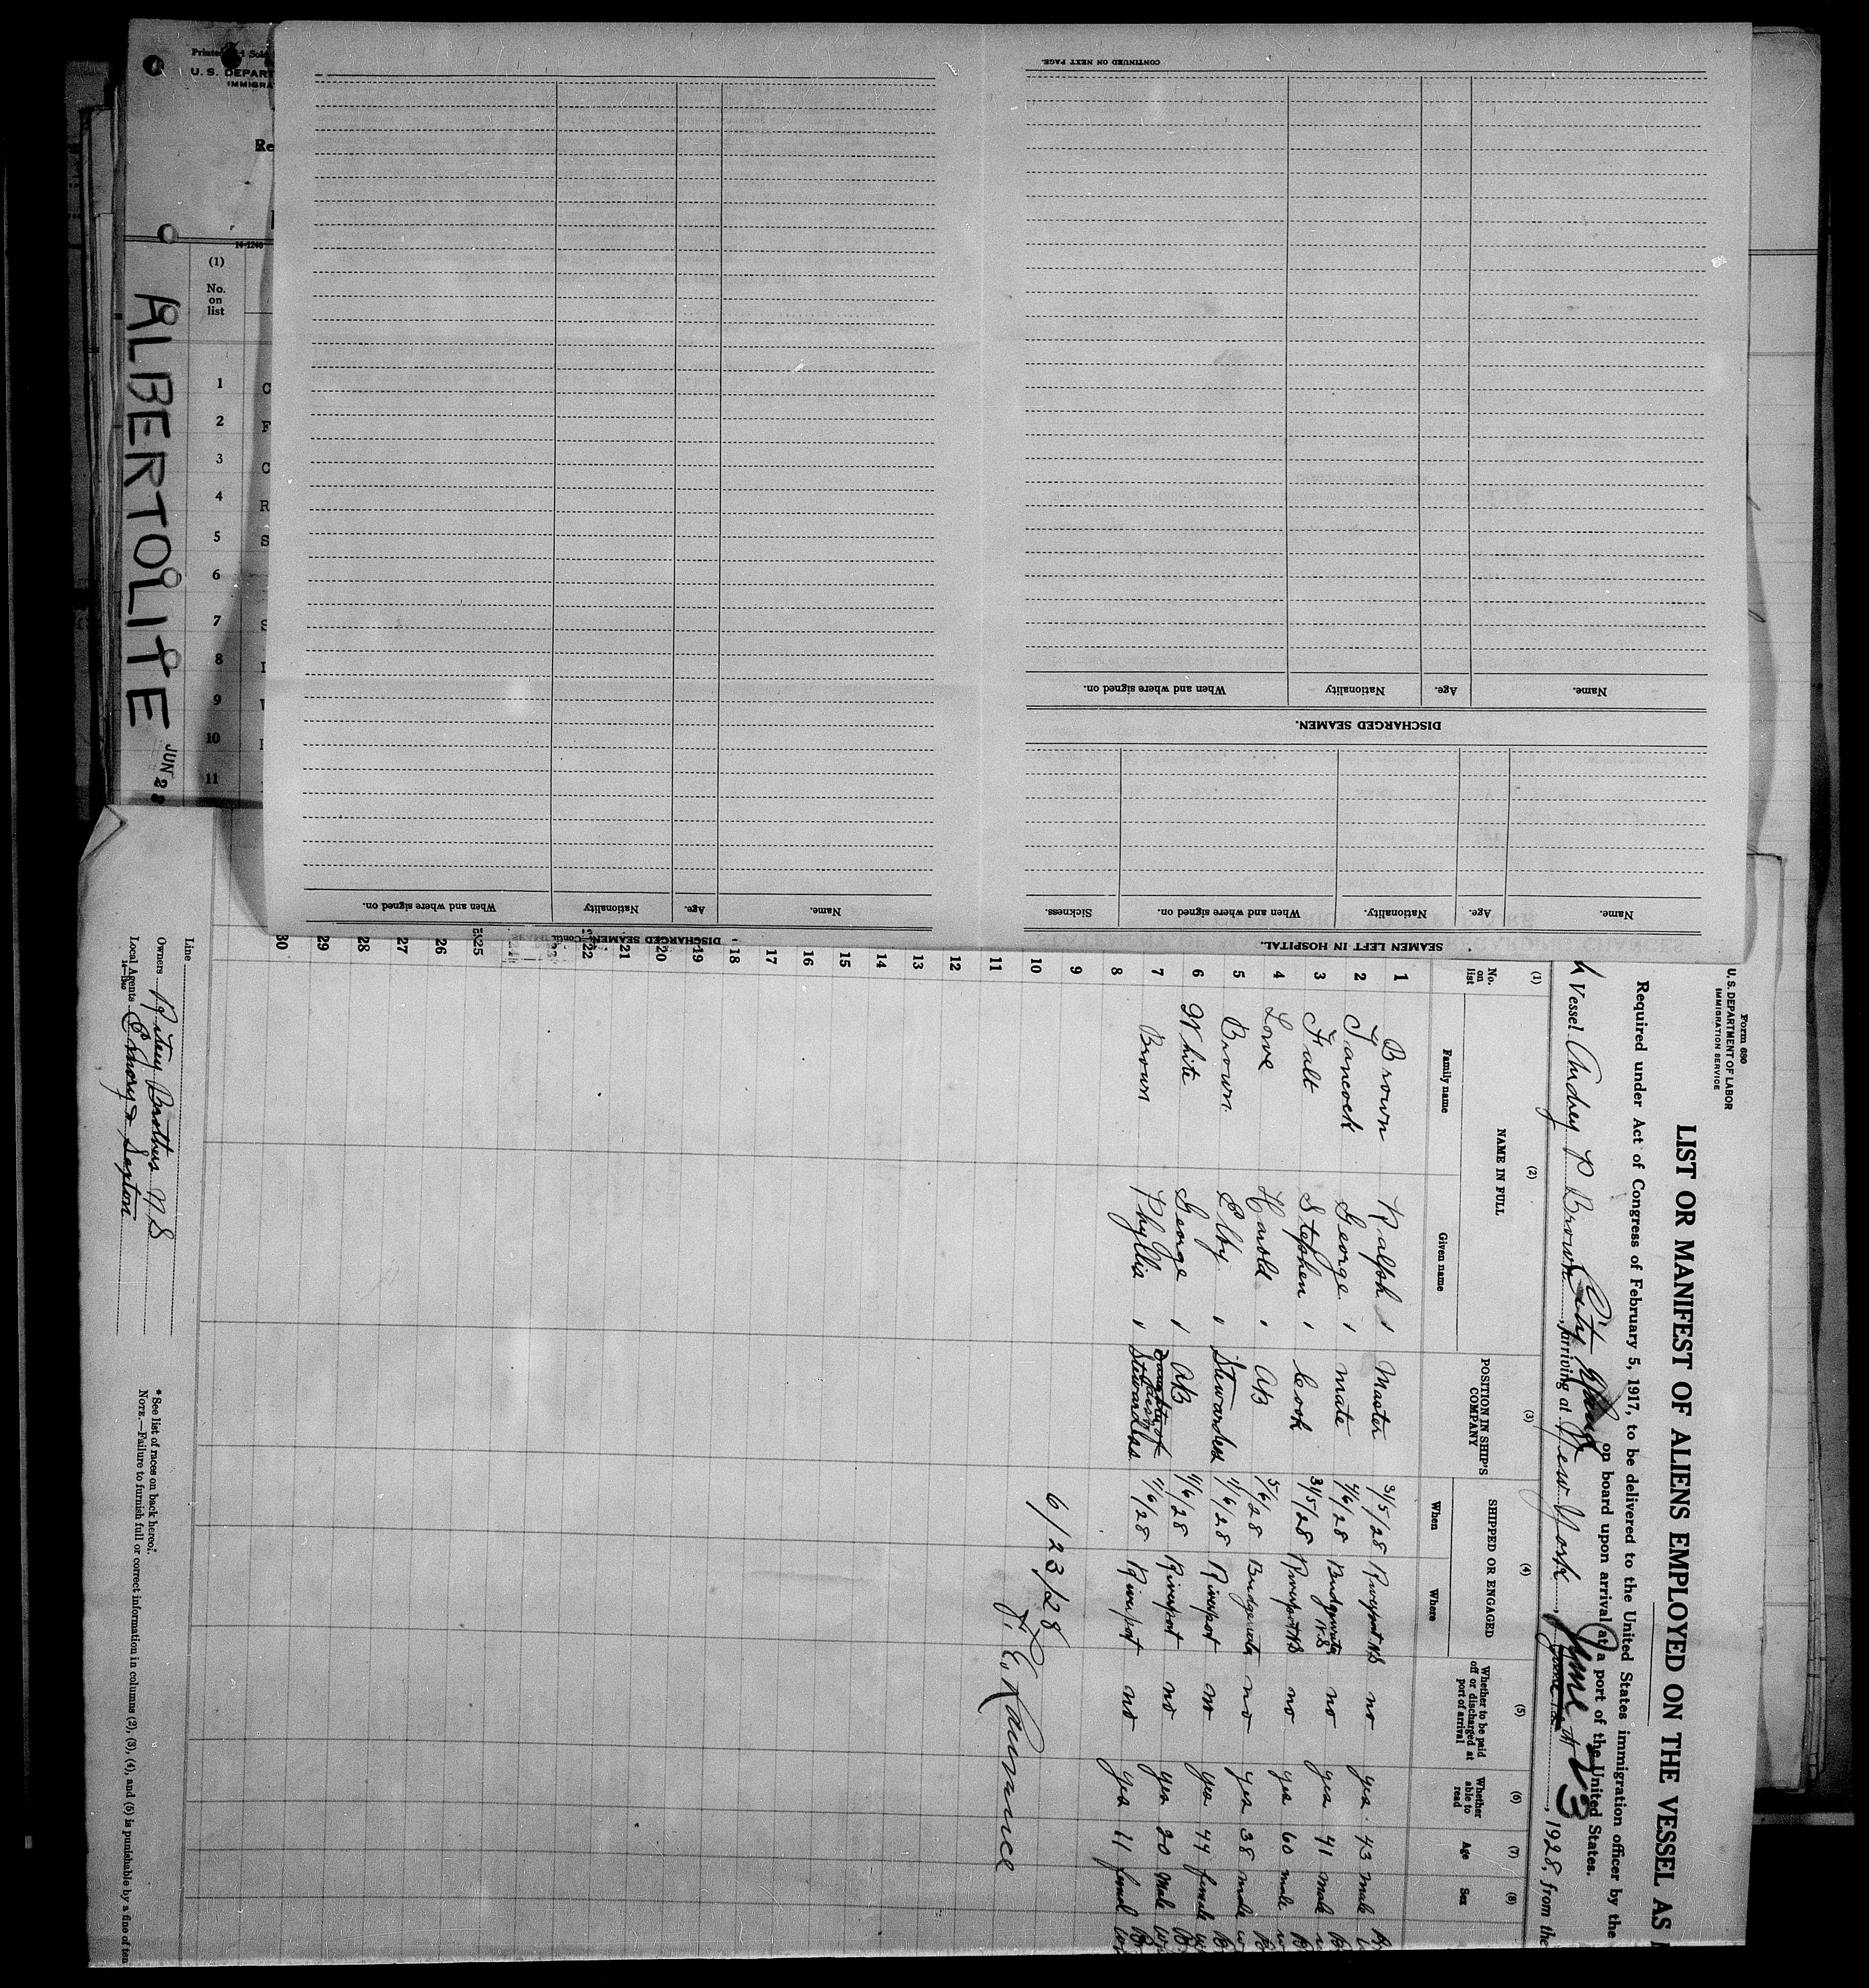 Form 680
U. S. DEPARTMENT OF LABOR
IMMIGRATION SERVICE
LIST OR MANIFEST OF ALIENS EMPLOYED ON THE VESSEL AS
Required under Act of Congress of February 5, 1917, to be delivered to the United States immigration officer by the
on board upon arrival at a port of the United States.
Vessel Audrey P Brown, arriving at New York, June 23, 1928, from the
City Island
(1) (2) (3) (4) (5) (6) (7) (8)
No. on list NAME IN FULL POSITION IN SHIP'S COMPANY SHIPPED OR ENGAGED Whether to be paid off or discharged at port of arrival Whether able to read Age Sex
Family name Given name When Where
1 Brown Ralph Master 31/5/28 Riverport NS no yes 43 male
2 Tancock George mate 4/6/28 Bridgewater NS no yes 41 male
3 Fault Stephen Cook 31/5/28 Riverport NS no yes 60 male
4 Love Harold AB 5/6/28 Bridgewater no yes 38 male
5 Brown Elby Stewardess 11/6/28 Riverport no yes 44 female
6 White George AB 11/6/28 Riverport no yes 20 Male
7 Brown Phyllis Stewardess 11/6/28 Riverport no yes 11 femal
8
9
10
11
12
13
14
15
16
17
18
19
20
21
22
25
26
27
28
29
30
6/23/28
Line
Owners Ritcey Brothers N S
Local Agents Emory & Sexton
14—1240
* See list of races on back hereof.
NOTE.—Failure to furnish full or correct information in columns (2), (3), (4), and (5) is punishable by a fine of ten
SEAMEN LEFT IN HOSPITAL.
Name. Age. Nationality. When and where signed on. Sickness.
DISCHARGED SEAMEN.
Name. Age. Nationality When and where signed on.
CONTINUED ON NEXT PAGE.
DISCHARGED SEAMEN—
Name. Age. Nationality When and where signed on.
Printed
U. S. DEPART
IMMIGRA
Re
14-1240
(1)
No. on list
1 C
2 F
3 C
4 R
5 S
6
7 S
8
9
10
11
ALBERTOLITE
JUN 2